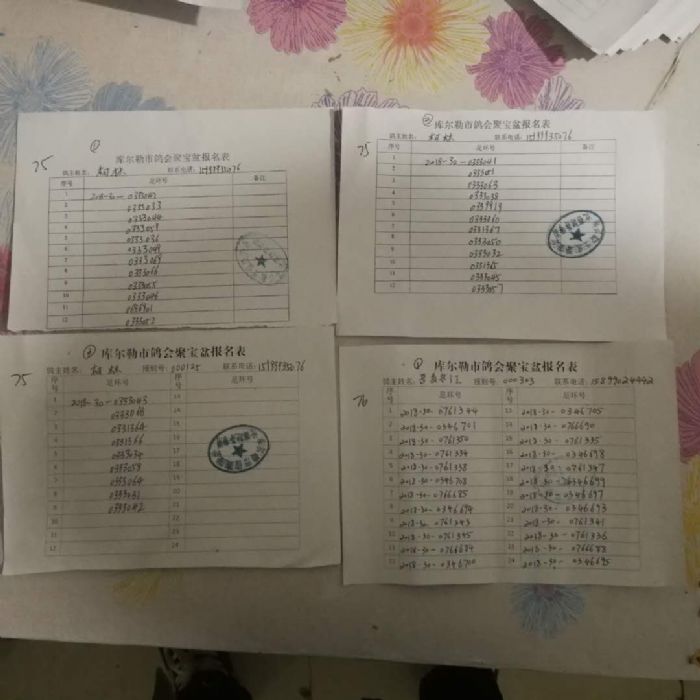 ①
75
库尔勒市鸽会聚宝盆报名表
鸽主姓名: 柯林 联系电话:
序号 足环号 备注
1 2018-30-0333047
2 0333033
3 0333044
4 0333059
5 0333036
6 0333049
7 0333069
8 0333066
9 0333055
10 0333046
11
12 0333052
②
75
库尔勒市鸽会聚宝盆报名表
鸽主姓名: 柯林 联系电话:
序号 足环号 备注
1 2018-30-0333041
2
3 0333063
4 0333038
5
6 0333060
7 0331367
8 0333050
9 0333032
10 0331365
11 0333045
12 0333057
③
75
库尔勒市鸽会聚宝盆报名表
鸽主姓名: 柯林 棚号: 000125 联系电话: 15999335076
序号 足环号 序号 足环号
1 2018-30-0333043 13
2 14
3 0331364 15
4 0331366 16
5 0333034 17
6 0333059 18
7 0333064 19
8 0333031 20
9 0333042 21
10 22
11 23
12 24
①
76
库尔勒市鸽会聚宝盆报名表
鸽主姓名: 棚号: 000303 联系电话: 15899024992
序号 足环号 序号 足环号
1 2018-30-0761344 13 2018-30-0346705
2 2018-30-0346701 14 2018-30-0766690
3 2018-30-0761350 15 2018-30-0761335
4 2018-30-0761334 16 2018-30-0346698
5 2018-30-0761338 17 2018-30-0761347
6 2018-30-0346708 18 2018-30-0346699
7 2018-30-0766685 19 2018-30-0346697
8 2018-30-0346694 20 2018-30-0346693
9 2018-30-0761343 21 2018-30-0761341
10 2018-30-0761345 22 2018-30-0761336
11 2018-30-0766684 23 2018-30-0766688
12 2018-30-0346700 24 2018-30-0346695